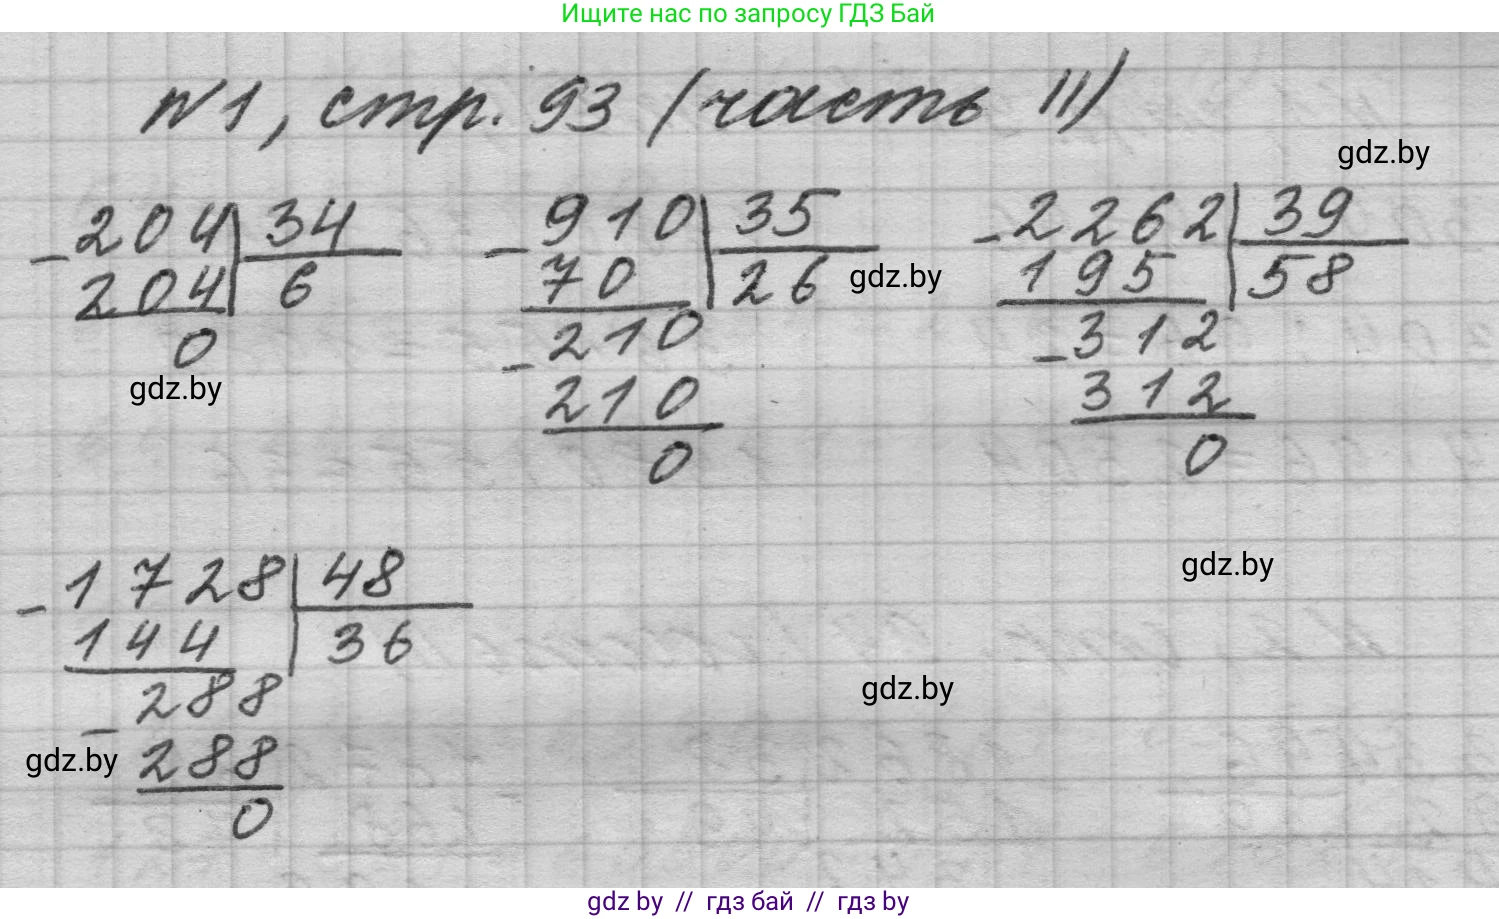 Ищите нас по запросу ГДЗ Бай
№1, стр. 93 (часть II)
gdz.by
- 204 | 34
204 | 6
0
gdz.by
- 910 | 35
70 | 26
gdz.by
- 210
210
0
- 2262 | 39
195 | 58
- 312
312
0
- 1728 | 48
144 | 36
- 288
288
0
gdz.by
gdz.by
gdz.by
gdz by // гдз бай // гдз by